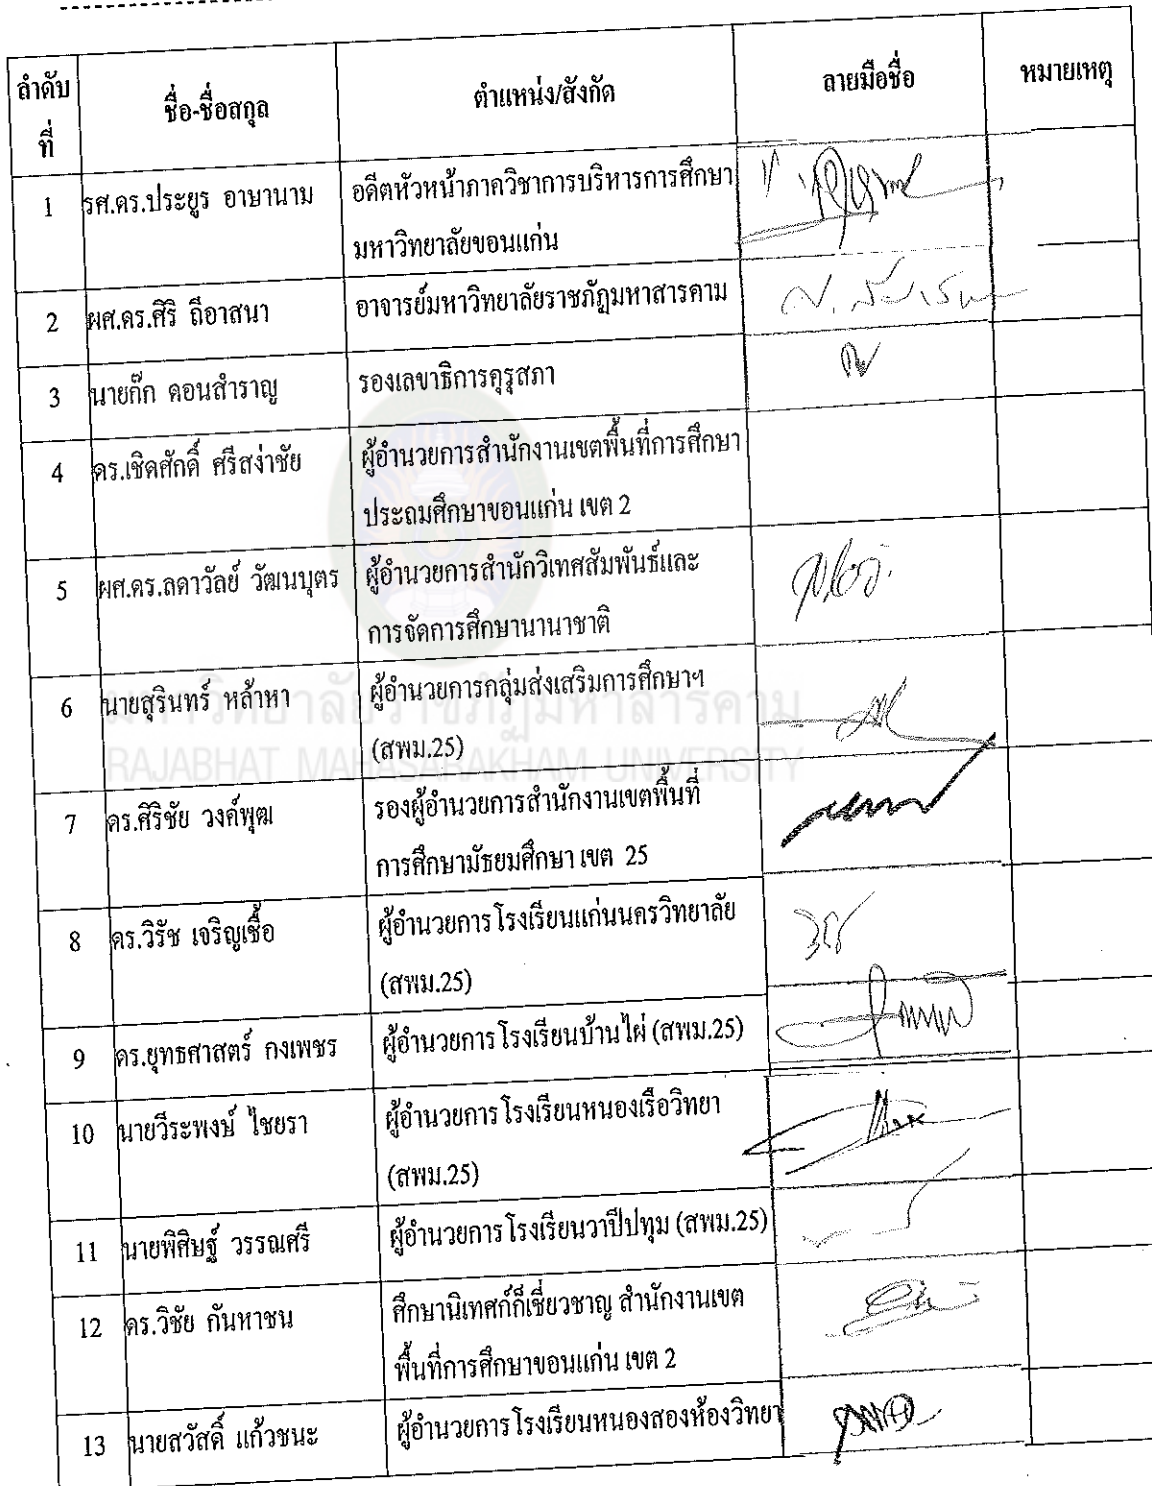 ลำดับ
ที่
ชื่อ-ชื่อสกุล
ตำแหน่ง/สังกัด
ลายมือชื่อ
หมายเหตุ
1 รศ.ดร.ประยูร อาษานาม อดีตหัวหน้าภาควิชาการบริหารการศึกษา
มหาวิทยาลัยขอนแก่น
2 ผศ.ดร.ศิริ ถีอาสนา อาจารย์มหาวิทยาลัยราชภัฏมหาสารคาม
3 นายก๊ก ดอนสำราญ รองเลขาธิการคุรุสภา
4 ดร.เชิดศักดิ์ ศรีสง่าชัย ผู้อำนวยการสำนักงานเขตพื้นที่การศึกษา
ประถมศึกษาขอนแก่น เขต 2
5 ผศ.ดร.ลดาวัลย์ วัฒนบุตร ผู้อำนวยการสำนักวิเทศสัมพันธ์และ
การจัดการศึกษานานาชาติ
6 นายสุรินทร์ หล้าหา ผู้อำนวยการกลุ่มส่งเสริมการศึกษาฯ
(สพม.25)
มหาวิทยาลัยราชภัฏมหาสารคาม
RAJABHAT MAHASARAKHAM UNIVERSITY
7 ดร.ศิริชัย วงค์พุฒ รองผู้อำนวยการสำนักงานเขตพื้นที่
การศึกษามัธยมศึกษา เขต 25
8 ดร.วิรัช เจริญเชื้อ ผู้อำนวยการโรงเรียนแก่นนครวิทยาลัย
(สพม.25)
9 ดร.ยุทธศาสตร์ กงเพชร ผู้อำนวยการโรงเรียนบ้านไผ่ (สพม.25)
10 นายวีระพงษ์ ไชยรา ผู้อำนวยการโรงเรียนหนองเรือวิทยา
(สพม.25)
11 นายพิศิษฐ์ วรรณศรี ผู้อำนวยการโรงเรียนวาปีปทุม (สพม.25)
12 ดร.วิชัย กันหาชน ศึกษานิเทศก์ก็เชี่ยวชาญ สำนักงานเขต
พื้นที่การศึกษาขอนแก่น เขต 2
13 นายสวัสดิ์ แก้วชนะ ผู้อำนวยการโรงเรียนหนองสองห้องวิทยา